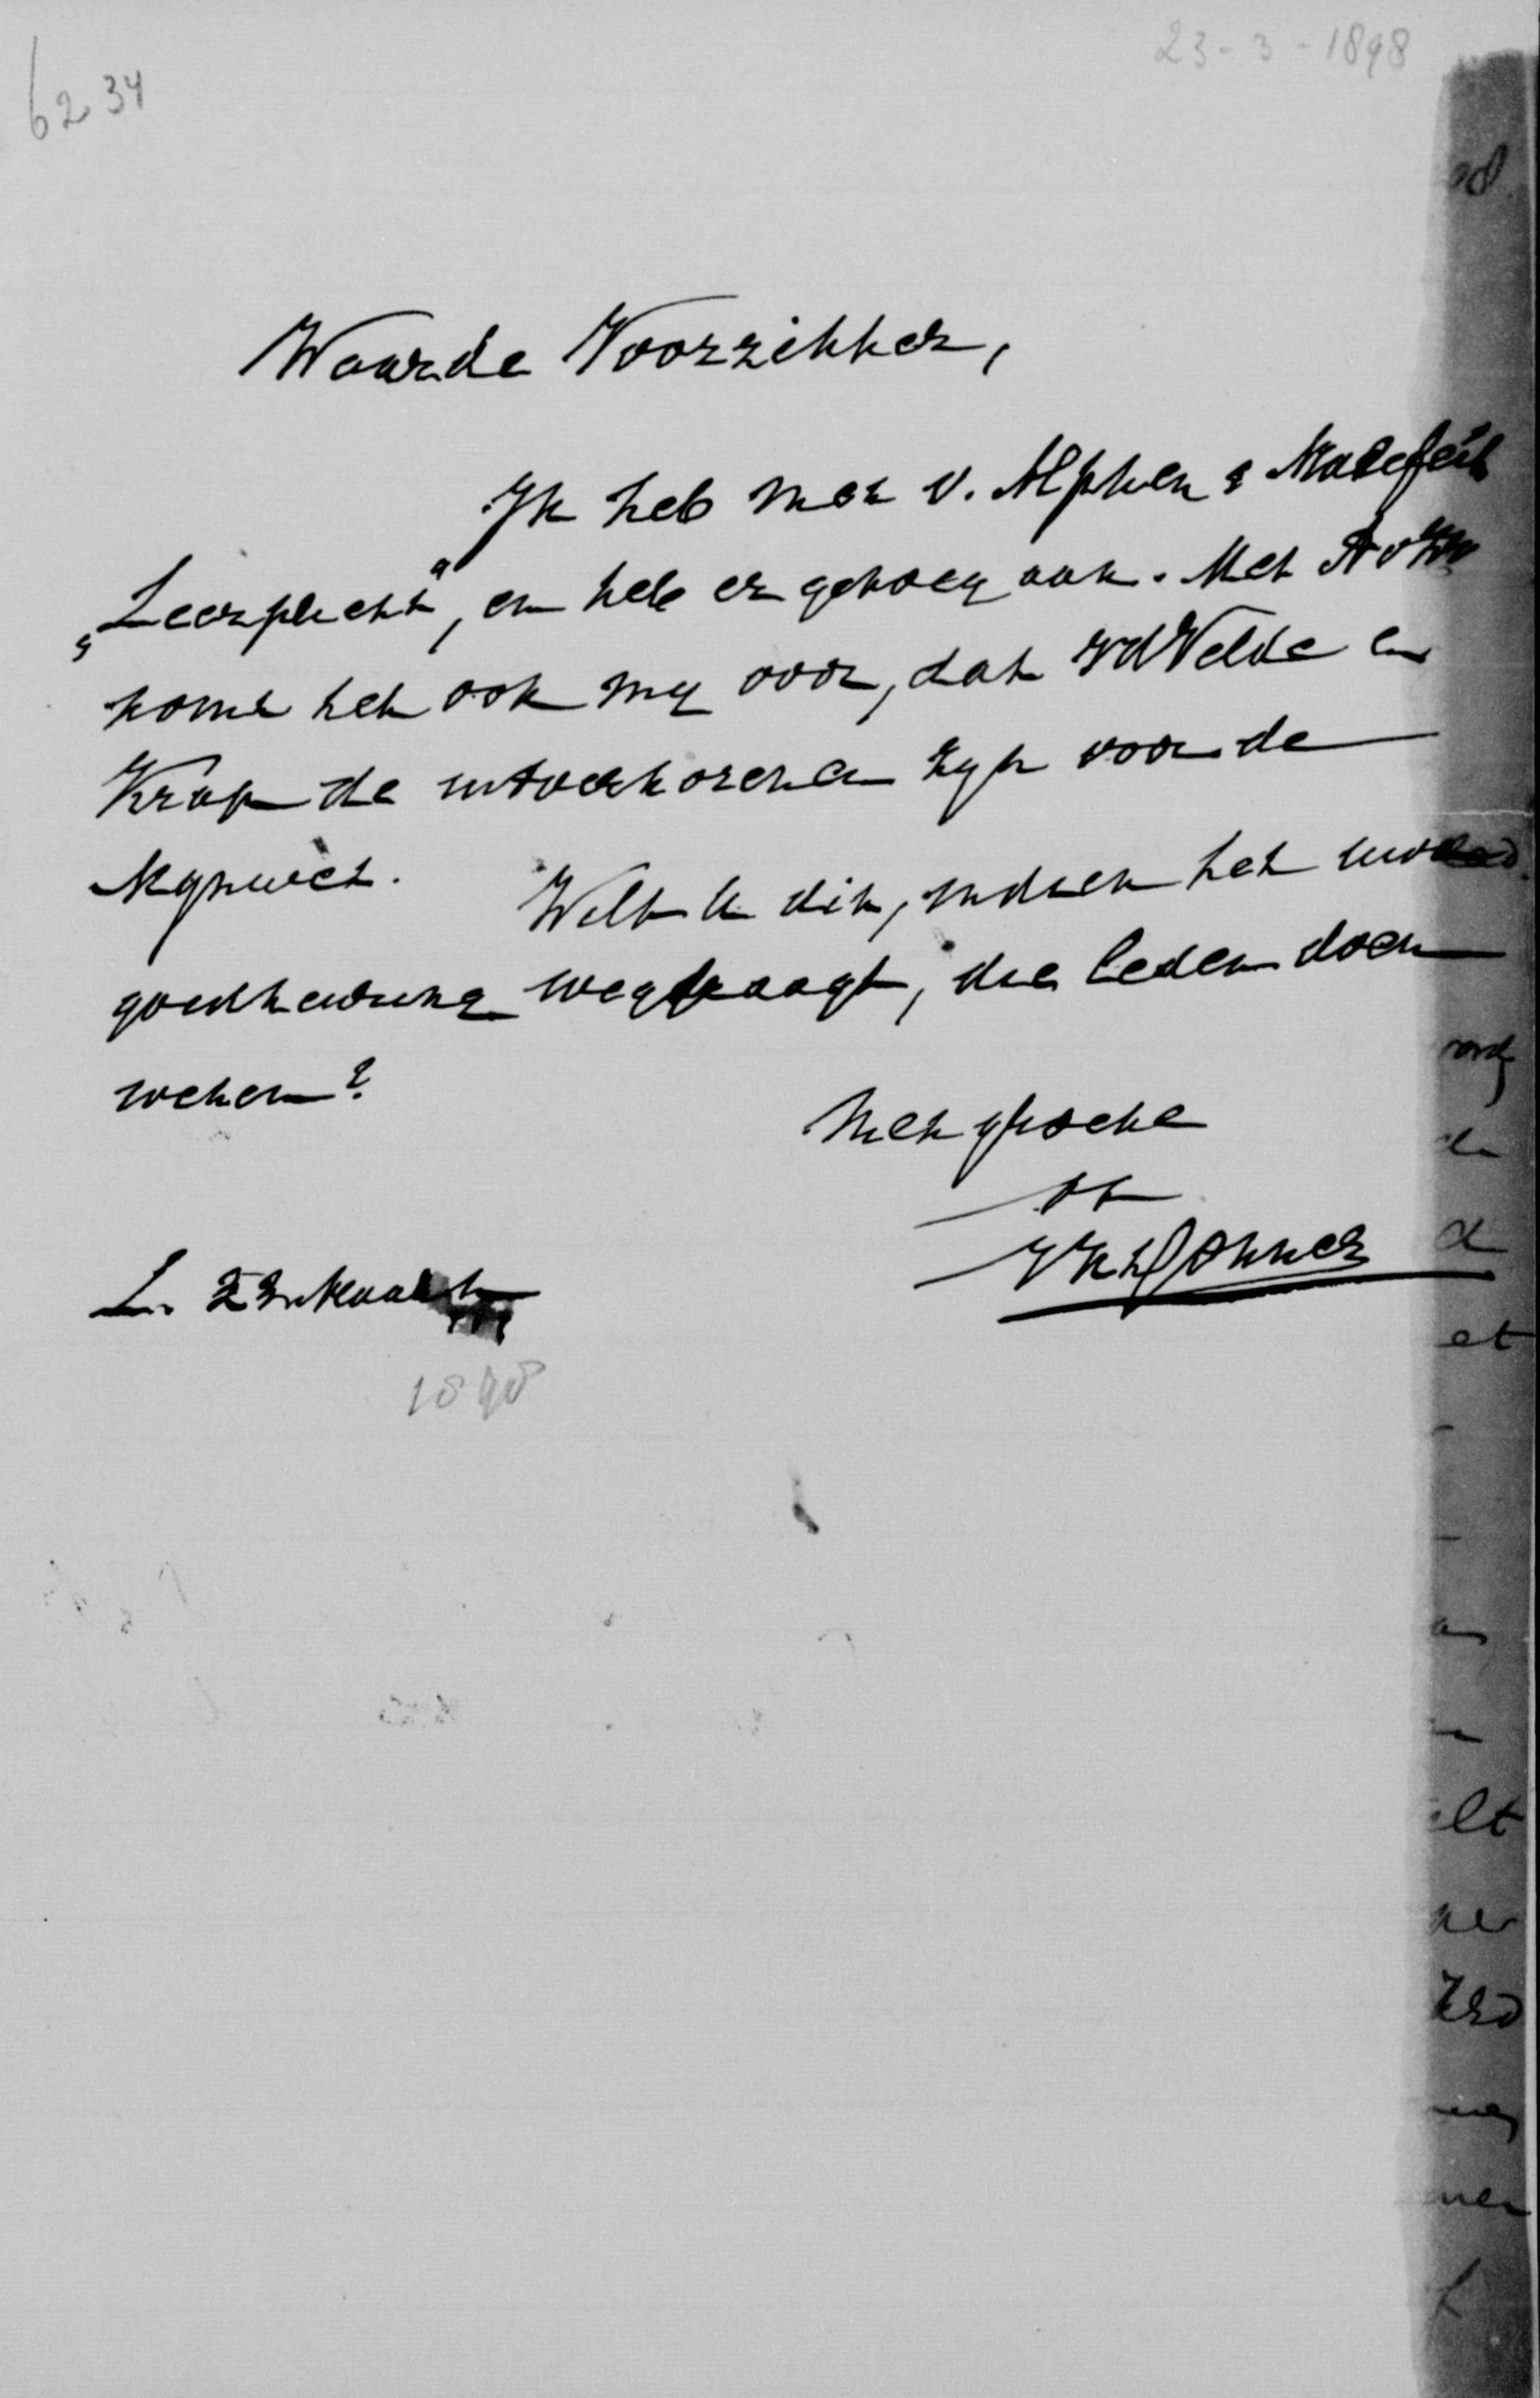 6234
23-3-1898
Waarde Voorzitter,
Ik heb met v. Alphen &
„Leerplicht", en heb er genoeg aan. Met
komt het ook my voor, dat vdVelde en
Krap de uitverkorenen zyn voor de
Mynwet.
Wilt U dit, indien het uwe
goedkeuring wegdraagt, die leden doen
weten?
Met groete
tt
Donner
L. 23 Maart
1898